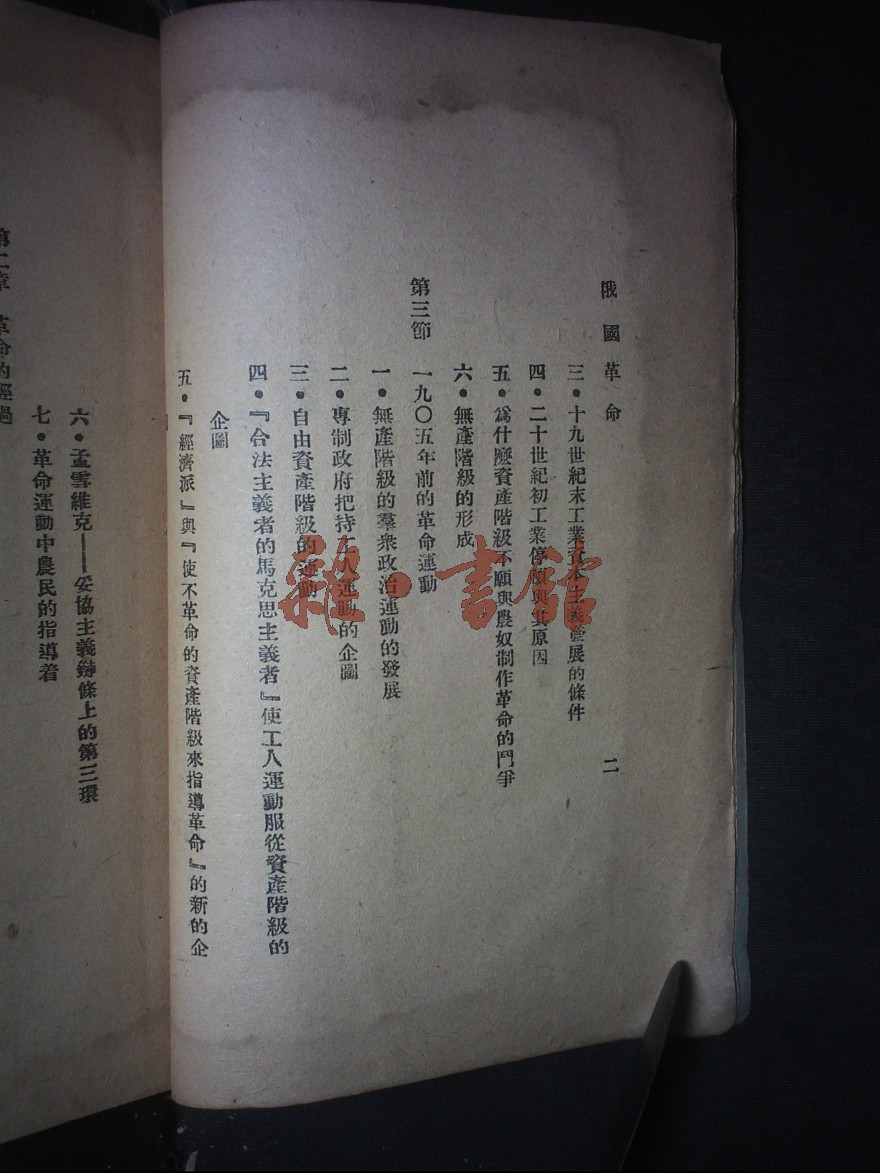 俄國革命
二
三・十九世紀末工業資本主義發展的條件
四・二十世紀初工業停頓與其原因
五・爲什麽資產階級不願與農奴制作革命的鬥爭
六・無產階級的形成
第三節 一九〇五年前的革命運動
一・無產階級的羣衆政治運動的發展
二・專制政府把持工人運動的企圖
三・自由資產階級的運動
四・『合法主義者的馬克思主義者』使工人運動服從資產階級的
企圖
五・『經濟派』與『使不革命的資產階級來指導革命』的新的企
六・孟雪維克——妥協主義鍊條上的第三環
七・革命運動中農民的指導着
第二章 革命的經過
雜・書館